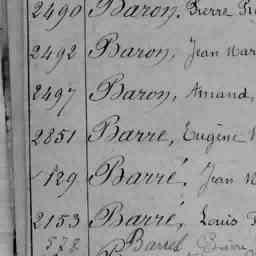 2490 Baron, Pierre
2492 Baron, Jean Mar
2497 Baron, Amand,
2851 Barre, Eugène
129 Barré, Jean
2153 Barré, Louis
578 Barré Pierre